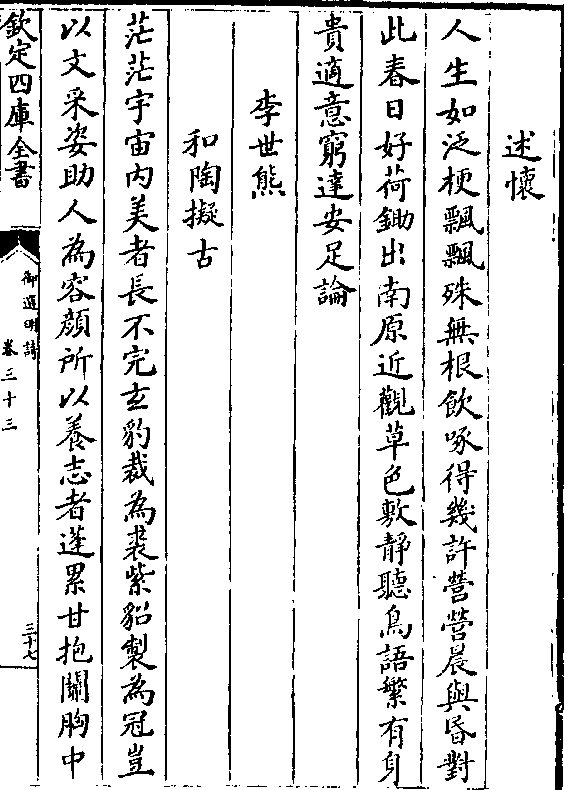 述懷
人生如泛梗飄飄殊無根飲啄得幾許營營晨與昏對
此春日好荷鋤出南原近觀草色敷靜聽鳥語繁有身
貴適意窮達安足論
李世熊
和陶擬古
茫茫宇宙内美者長不完玄豹裁為裘紫貂製為冠豈
以文采姿助人為容顔所以養志者蓬累甘抱關胸中
欽定四庫全書
御選明詩
卷三十三
三十七